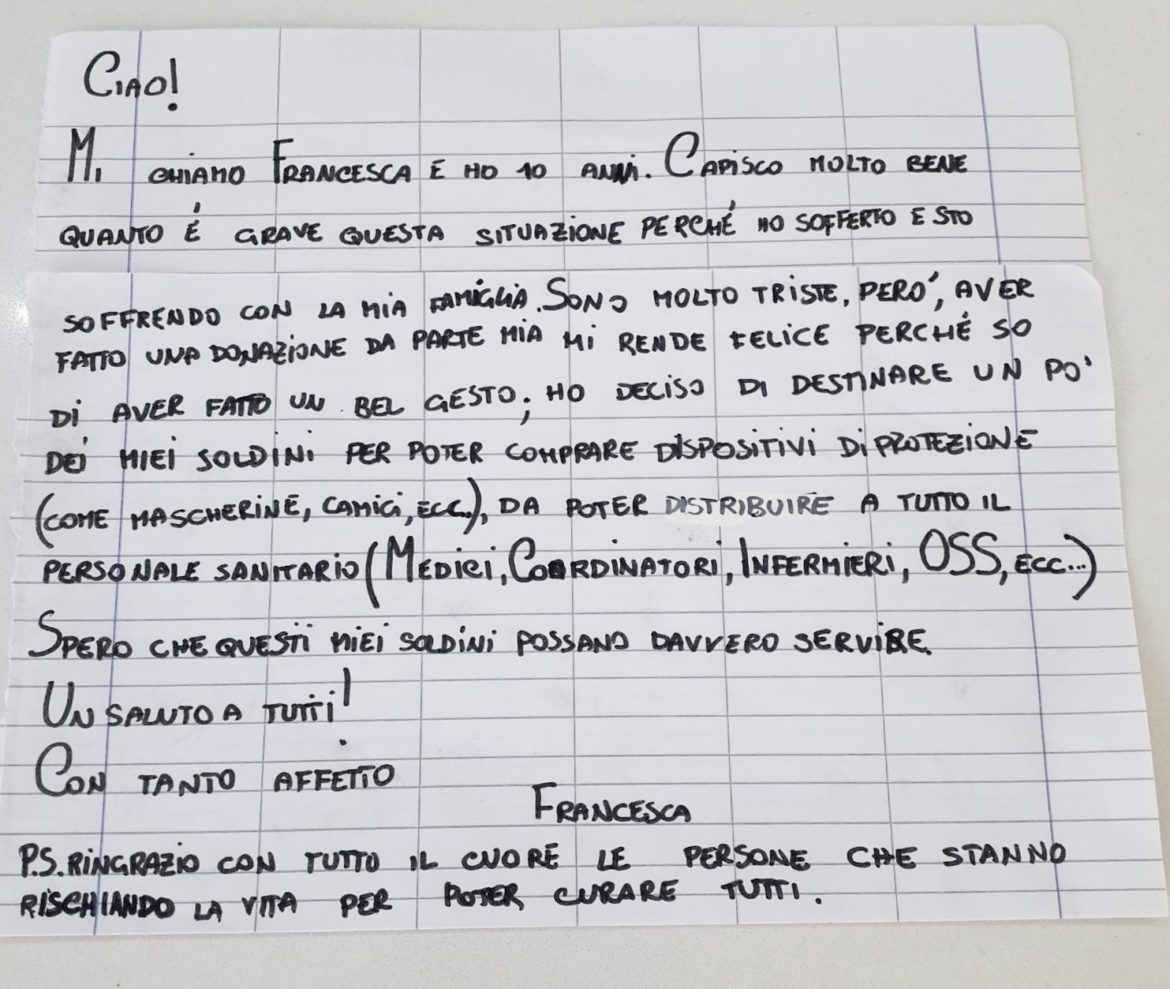 Ciao!
Mi chiamo Francesca e ho 10 anni. Capisco molto bene
quanto é grave questa situazione perché ho sofferto e sto
soffrendo con la mia famiglia. Sono molto triste, però, aver
fatto una donazione da parte mia mi rende felice perché so
di aver fatto un bel gesto; ho deciso di destinare un pò
dei miei soldini per poter comprare dispositivi di protezione
(come mascherine, camici, ecc..), da poter distribuire a tutto il
personale sanitario (Medici, Coordinatori, Infermieri, OSS, ecc...)
Spero che questi miei soldini possano davvero servire.
Un saluto a tutti!
Con tanto affetto
Francesca
P.S. Ringrazio con tutto il cuore le persone che stanno
rischiando la vita per poter curare tutti.